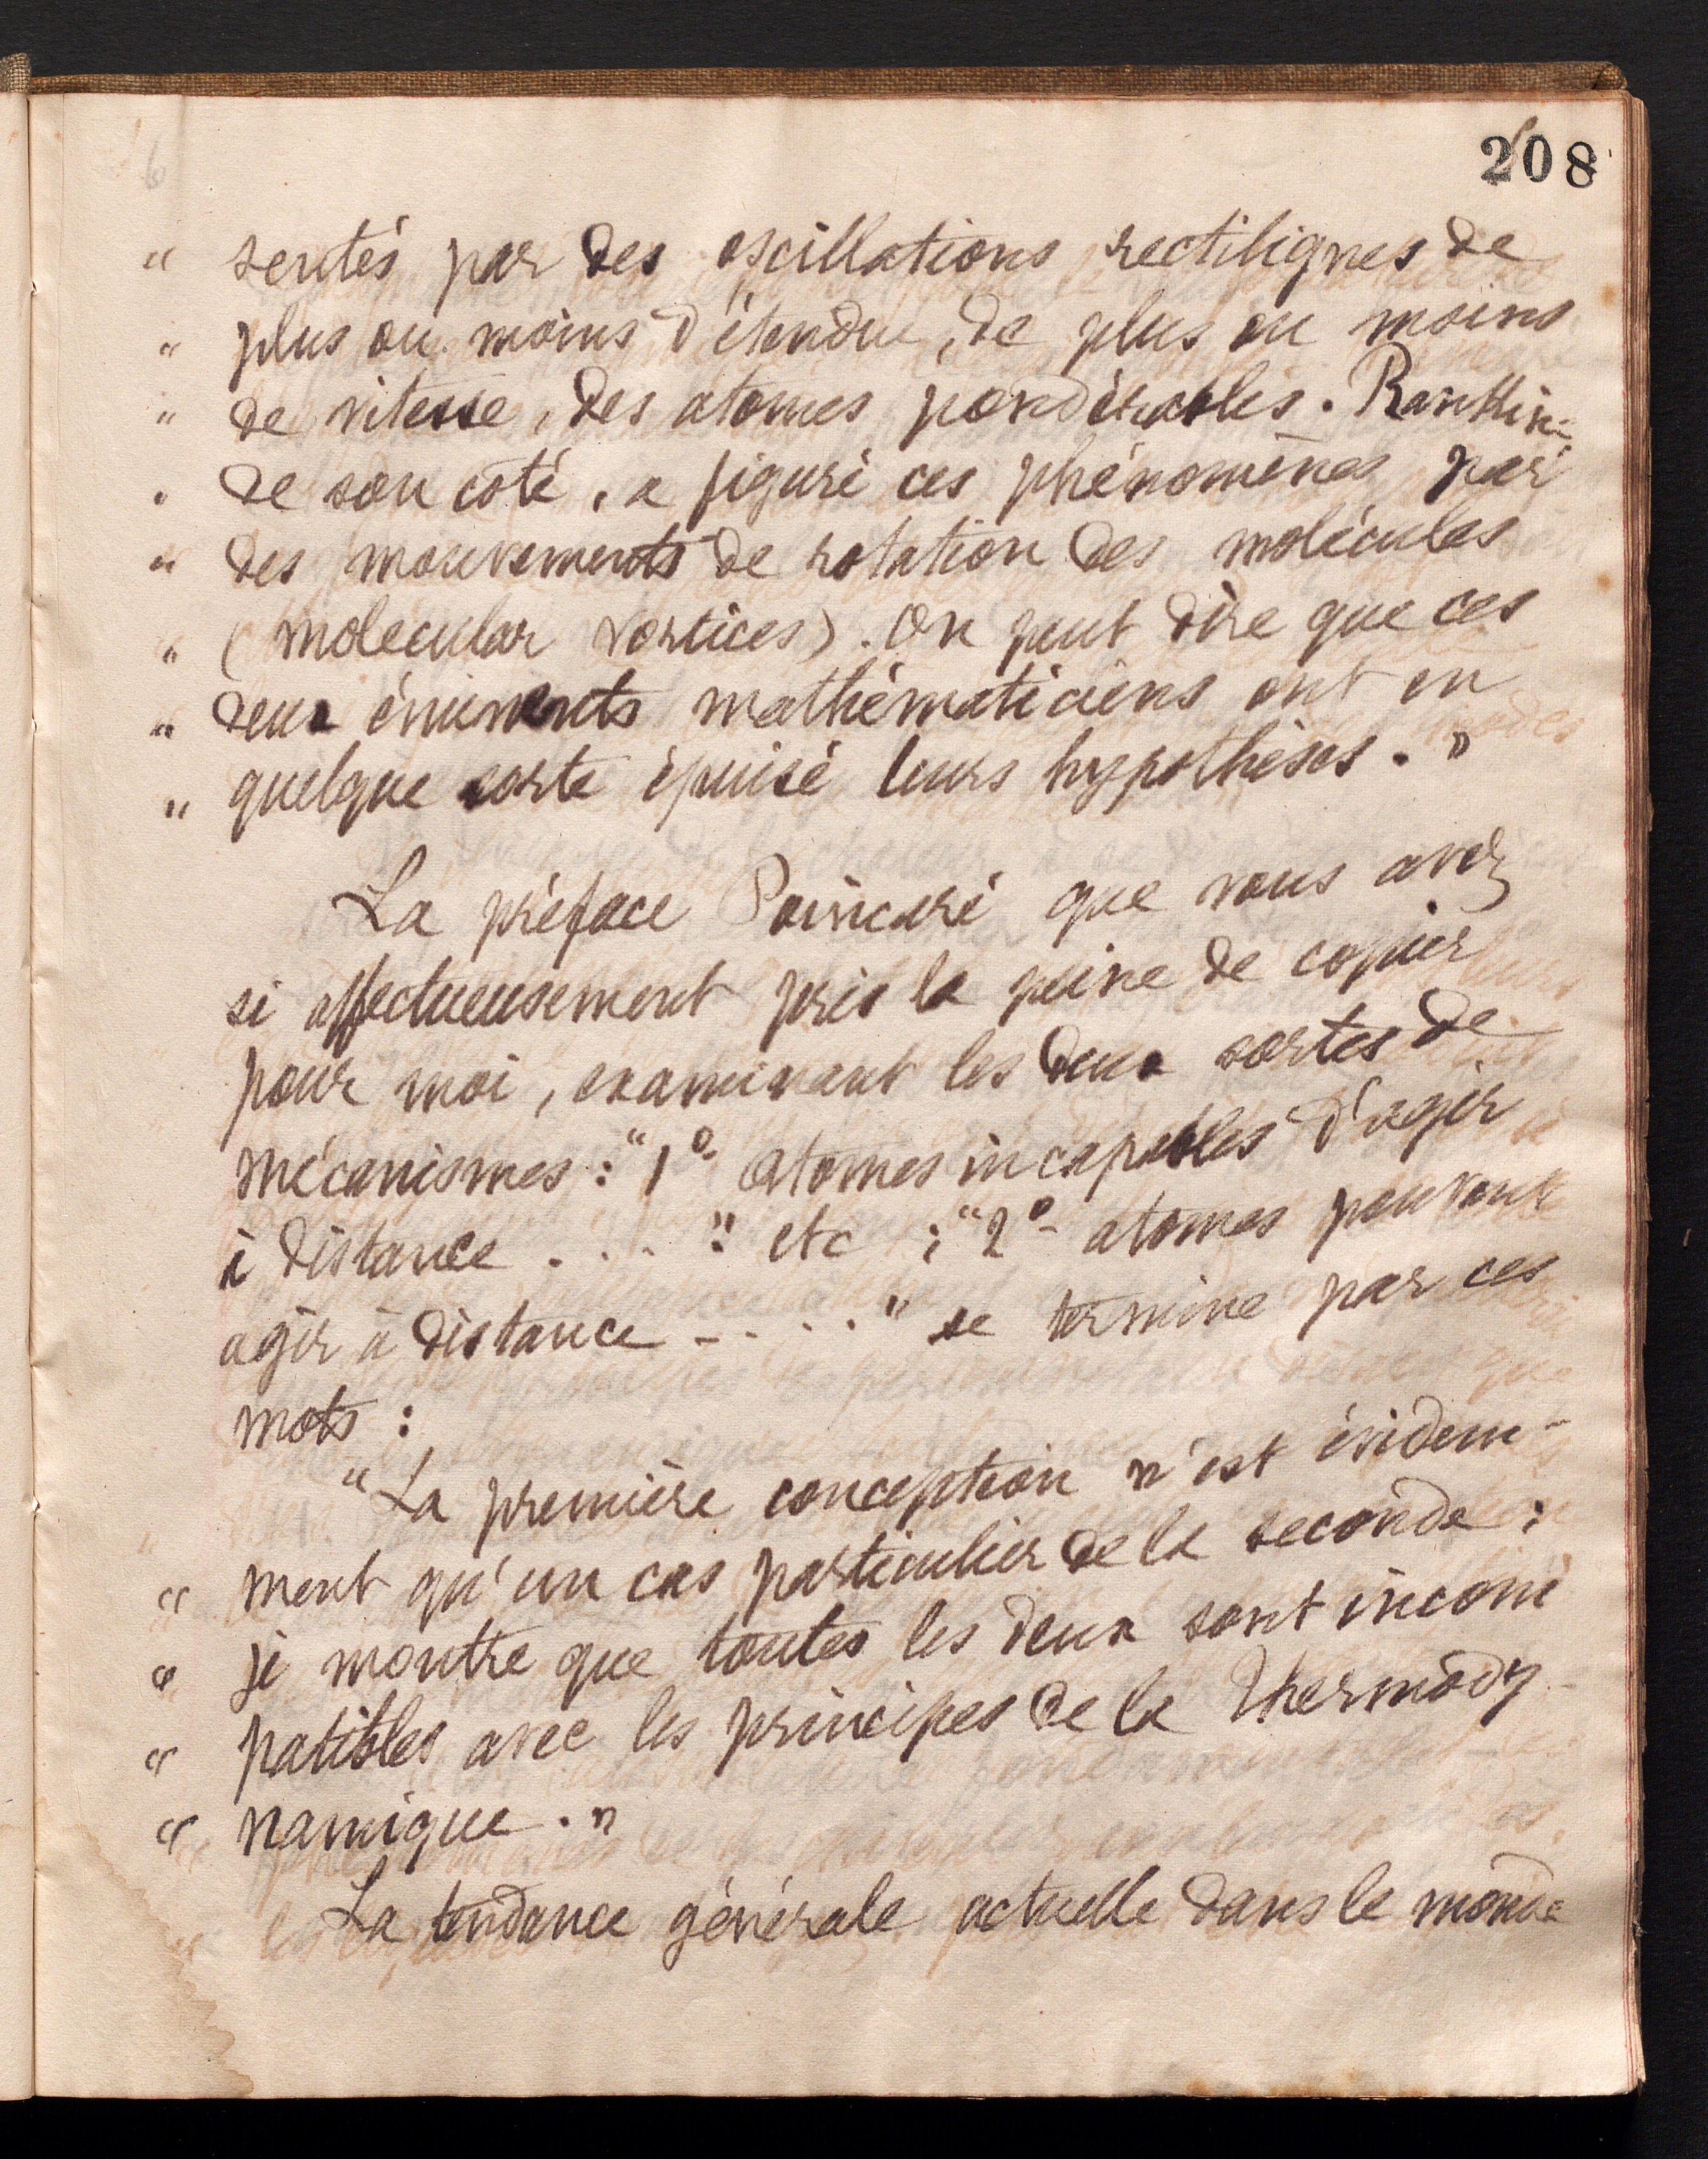 208
" sentés par des oscillations rectilignes de
" plus ou moins d'étendue, de plus ou moins
" de vitesse, des atomes pondérables. Rankine
" de son côté, a figuré ces phénomènes par
" des mouvements de rotation des molécules
" (molecular vortices). On peut dire que ces
" deux éminents mathématiciens ont en
" quelque sorte épuisé leurs hypothèses. "
La préface Poincaré que vous avez
si affectueusement pris la peine de copier
pour moi, examinant les deux sortes de
mécanismes : "1° atomes incapables d'agir
à distance . . . ." etc ; "2° - atomes pouvant
agir à distance - . . . ." se termine par ces
mots :
"La première conception n'est évidem-
" ment qu'un cas particulier de la seconde ;
" je montre que toutes les deux sont incom
" patibles avec les principes de la Thermody
" namique . "
La tendance générale actuelle dans le monde